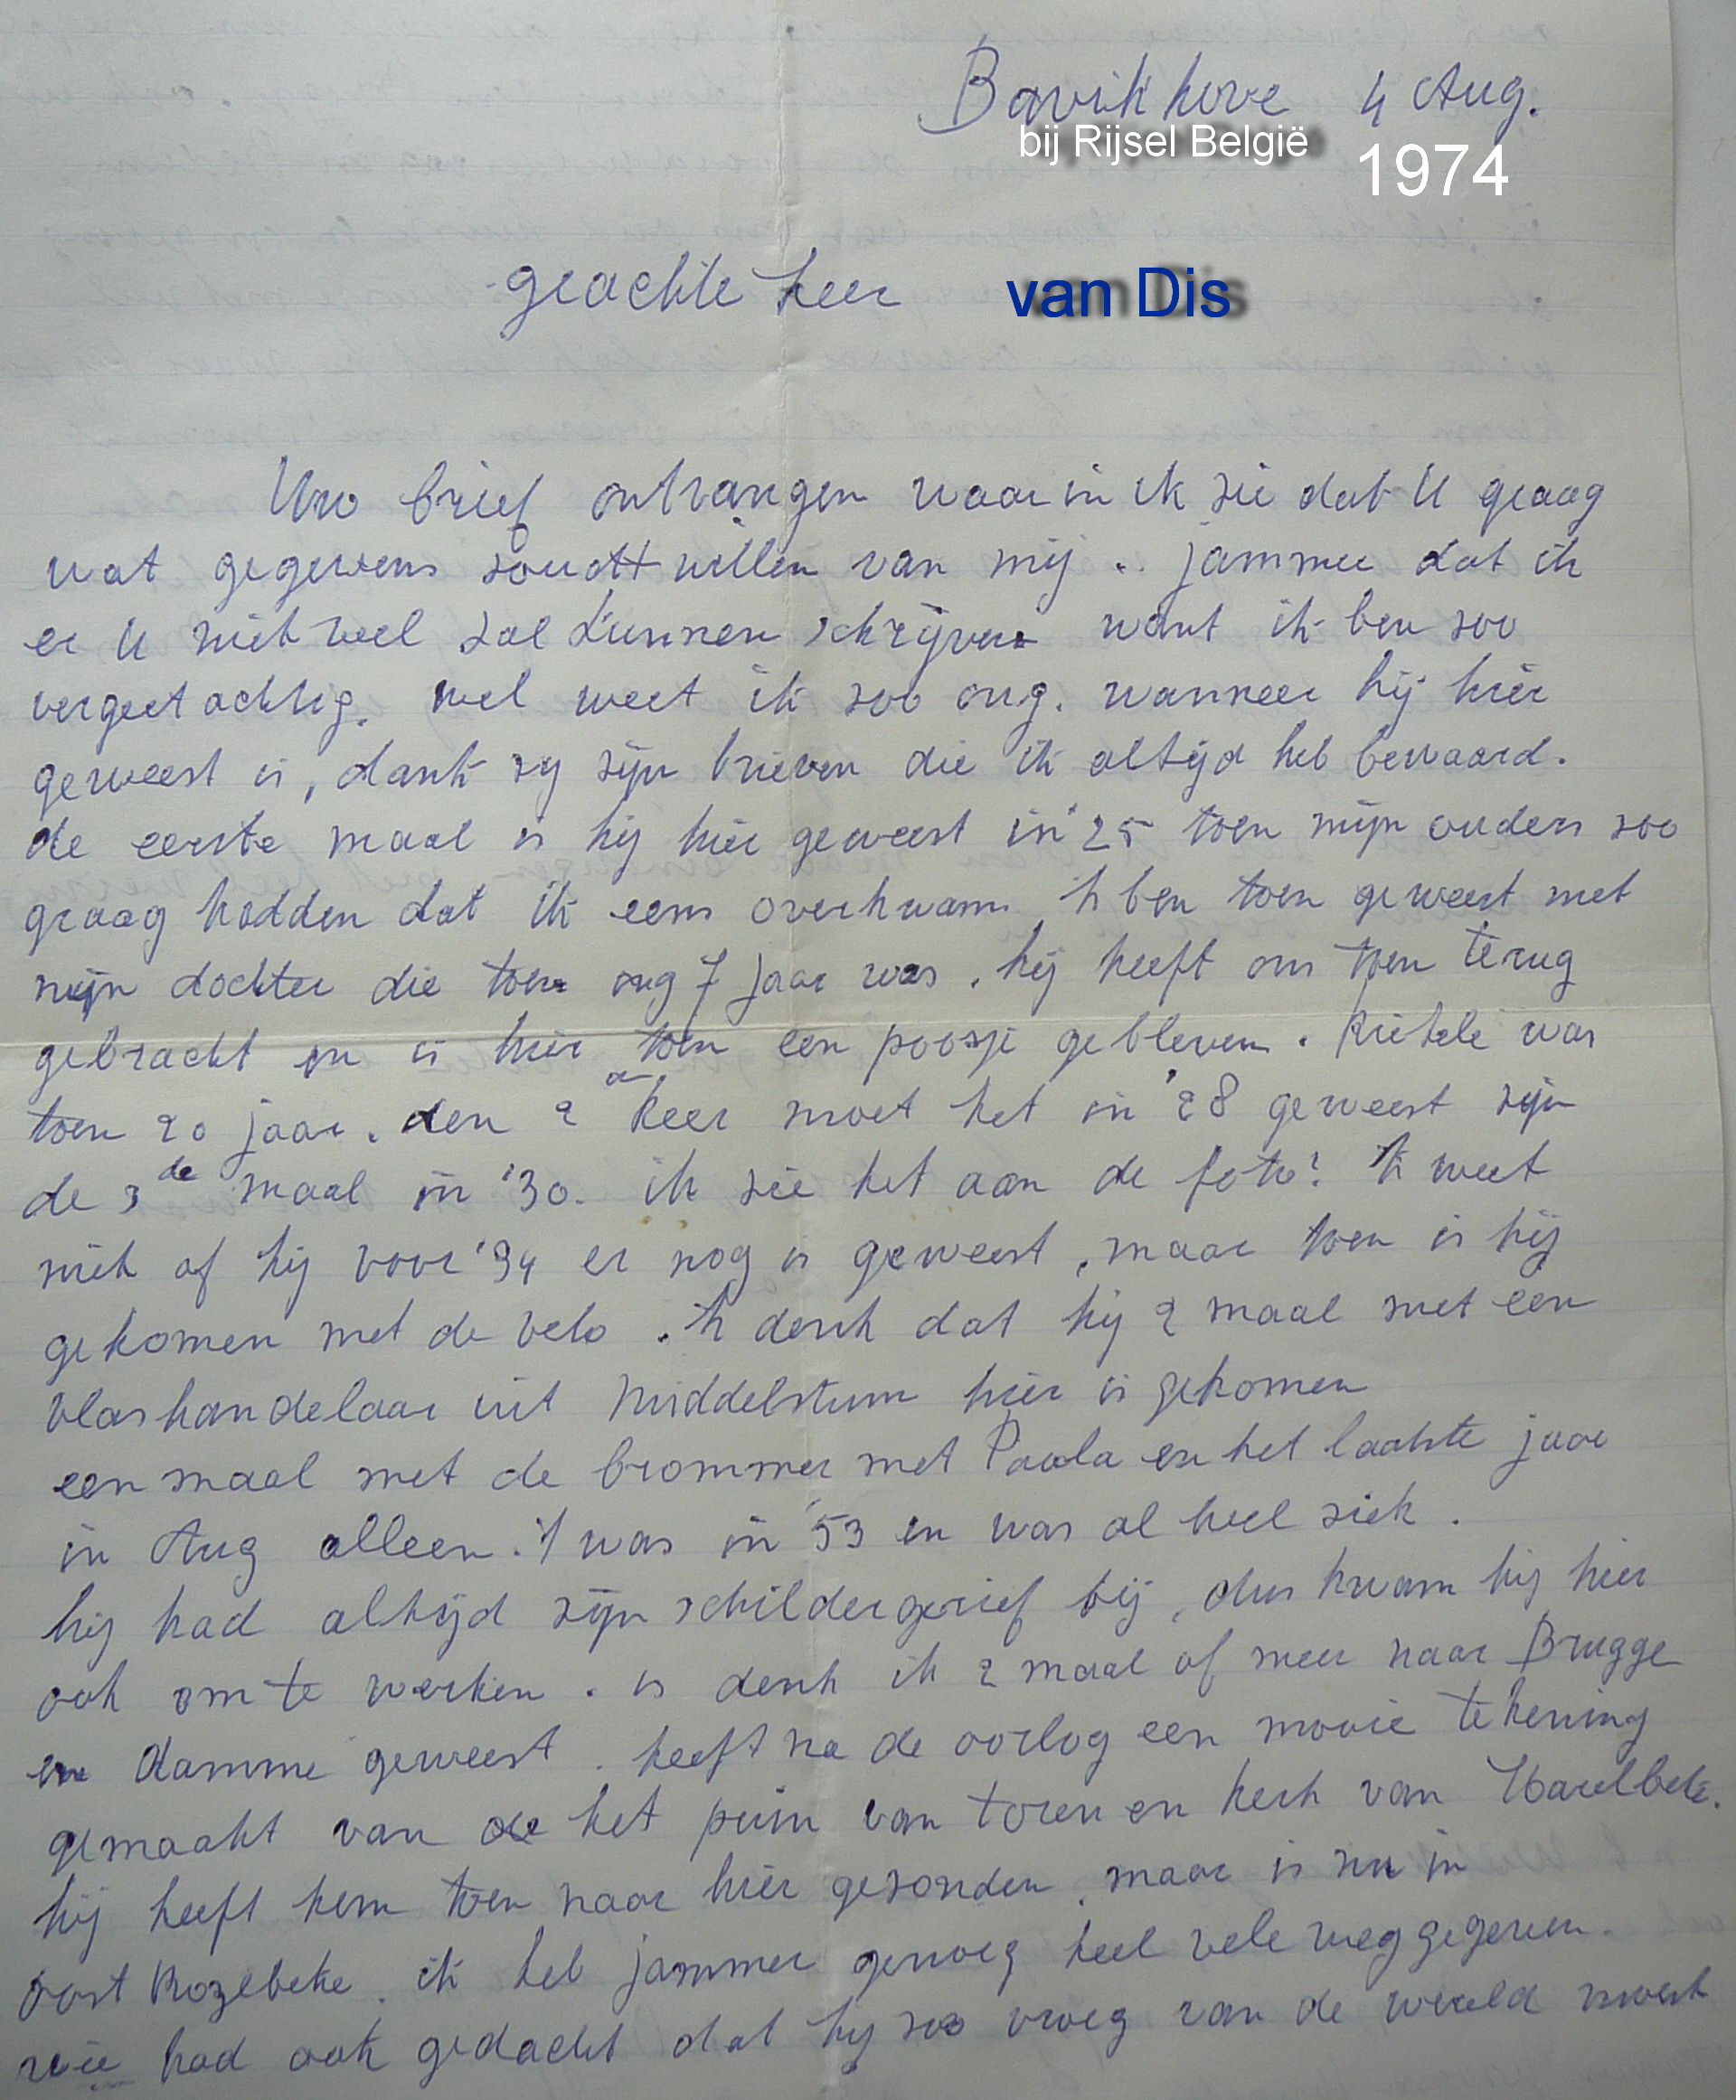 Bavikhove 4 Aug.
bij Rijsel België
1974
geachte heer van Dis
Uw brief ontvangen waar in ik zie dat U graag
wat gegevens zoudt willen van mij .. jammer dat ik
er U niet veel zal kunnen schrijven want ik ben zoo
vergeetachtig. wel weet ik zoo ong. wanneer hij hier
geweest is, dank zij zijn brieven die ik altijd heb bewaard.
de eerste maal is hij hier geweest in '25 toen mijn ouders zoo
graag hadden dat ik eens overkwam 'k ben toen geweest met
mijn dochter die toen ong 7 jaar was. hij heeft ons toen terug
gebracht en is hier toen een poosje gebleven. was
toen 20 jaar. den 2de keer moet het in '28 geweest zijn
de 3de maal in '30. ik zie het aan de foto! 'k weet
niet of hij voor '34 er nog is geweest, maar toen is hij
gekomen met de velo. 'k denk dat hij 2 maal met een
vlashandelaar uit Middelstum hier is gekomen
een maal met de brommer met Paula en het laatste jaar
in Aug alleen. 't was in '53 en was al heel ziek.
hij had altijd zijn schildergerief bij, dus kwam hij hier
ook om te werken. is denk ik 2 maal of meer naar Brugge
en Damme geweest. heeft na de oorlog een mooie tekening
gemaakt van het puin van toren en kerk van Harelbeke.
hij heeft hem toen naar hier gezonden. maar is nu in
Oost Rozebeke. ik heb jammer genoeg heel vele weggegeven.
wie had ook gedacht dat hij zoo vroeg van de wereld moest